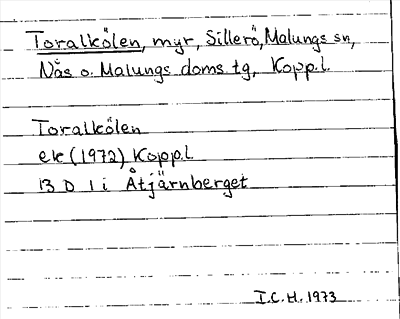 Toralkölen, myr, Sillerö, Malungs sn,
Nås o. Malungs doms.tg, Kopp.l.
Toralkölen
ek (1972) Kopp.l.
13 D 1 i Åtjärnberget
I.C.H. 1973